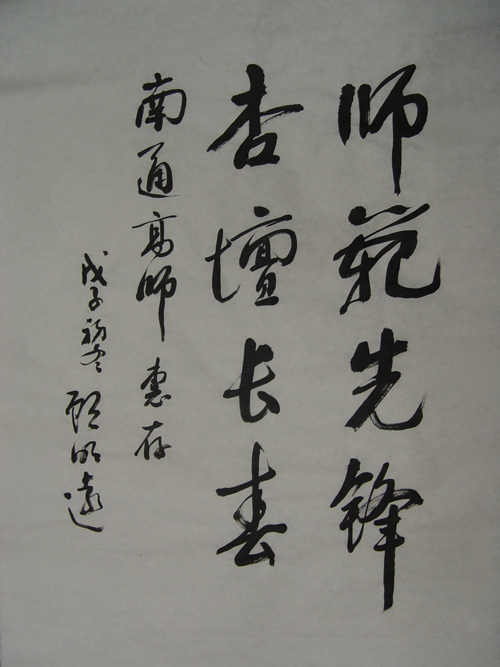 师范先锋
杏坛长春
南通高师 惠存
戊子初冬 顾明远